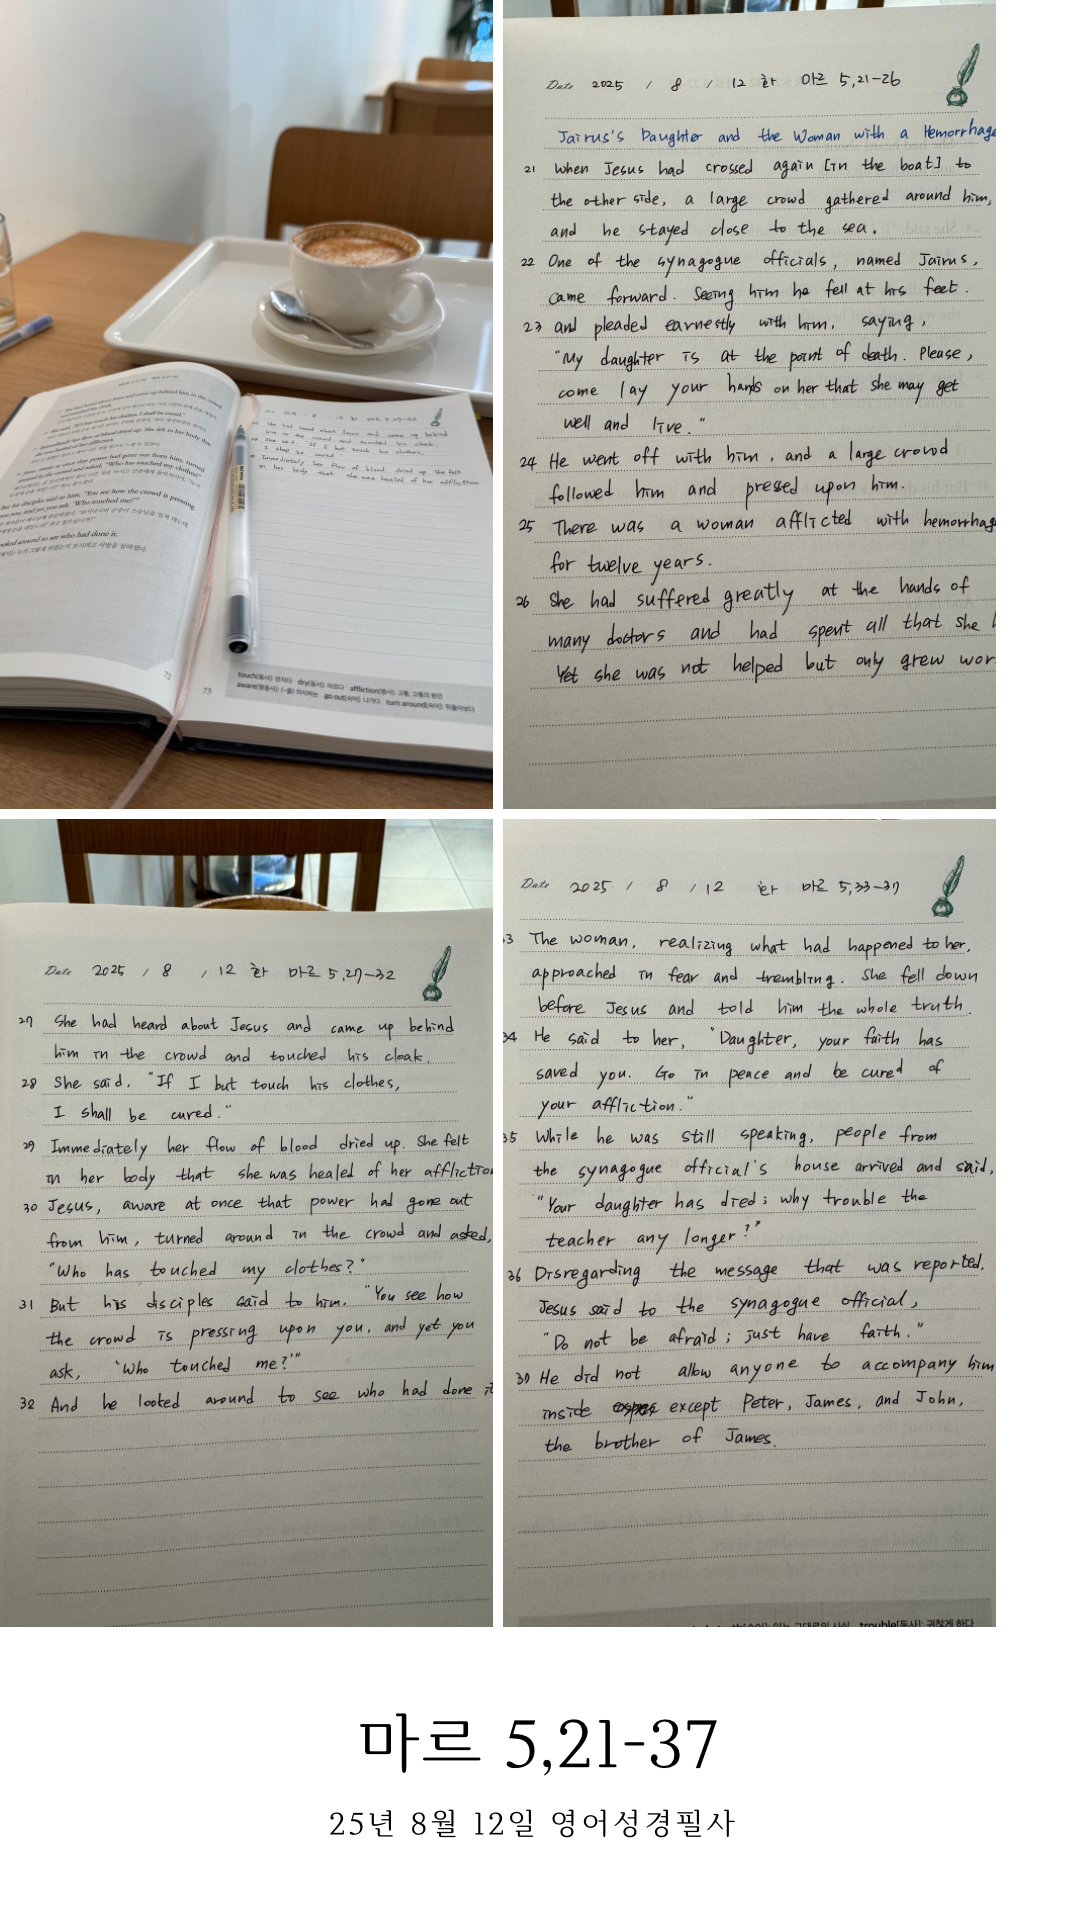 touch[동사]: 만지다 dry[동사]: 마르다 affliction[명사]: 고통, 고통의 원인
aware[형용사]: (~을) 의식하는 go out[숙어]: 나가다 turn around[숙어]: 뒤돌아보다
72
73
Date 2025 / 8 / 12 화 마르 5,21-26
Jairus's Daughter and the Woman with a Hemorrhage
21 When Jesus had crossed again [in the boat] to
the other side, a large crowd gathered around him,
and he stayed close to the sea.
22 One of the synagogue officials, named Jairus,
came forward. Seeing him he fell at his feet.
23 and pleaded earnestly with him, saying,
"My daughter is at the point of death. Please,
come lay your hands on her that she may get
well and live."
24 He went off with him, and a large crowd
followed him and pressed upon him.
25 There was a woman afflicted with hemorrhag
for twelve years.
26 She had suffered greatly at the hands of
many doctors and had spent all that she
Yet she was not helped but only grew wor
Date 2025 / 8 / 12 화 마르 5,27-32
27 She had heard about Jesus and came up behind
him in the crowd and touched his cloak.
28 She said, "If I but touch his clothes,
I shall be cured."
29 Immediately her flow of blood dried up. She felt
in her body that she was healed of her affliction
30 Jesus, aware at once that power had gone out
from him, turned around in the crowd and asked,
"Who has touched my clothes?"
31 But his disciples said to him. "You see how
the crowd is pressing upon you, and yet you
ask, 'Who touched me?'"
32 And he looted around to see who had done it
Date 2025 / 8 / 12 화 마르 5,33-37
33 The woman, realizing what had happened to her,
approached in fear and trembling. She fell down
before Jesus and told him the whole truth.
34 He said to her, "Daughter, your faith has
saved you. Go in peace and be cured of
your affliction."
35 While he was still speaking, people from
the synagogue official's house arrived and said,
"Your daughter has died; why trouble the
teacher any longer?"
36 Disregarding the message that was reported,
Jesus said to the synagogue official,
"Do not be afraid; just have faith."
37 He did not allow anyone to accompany him
inside except Peter, James, and John,
the brother of James.
trouble[동사]: 귀찮게 하다
마르 5,21-37
25년 8월 12일 영어성경필사